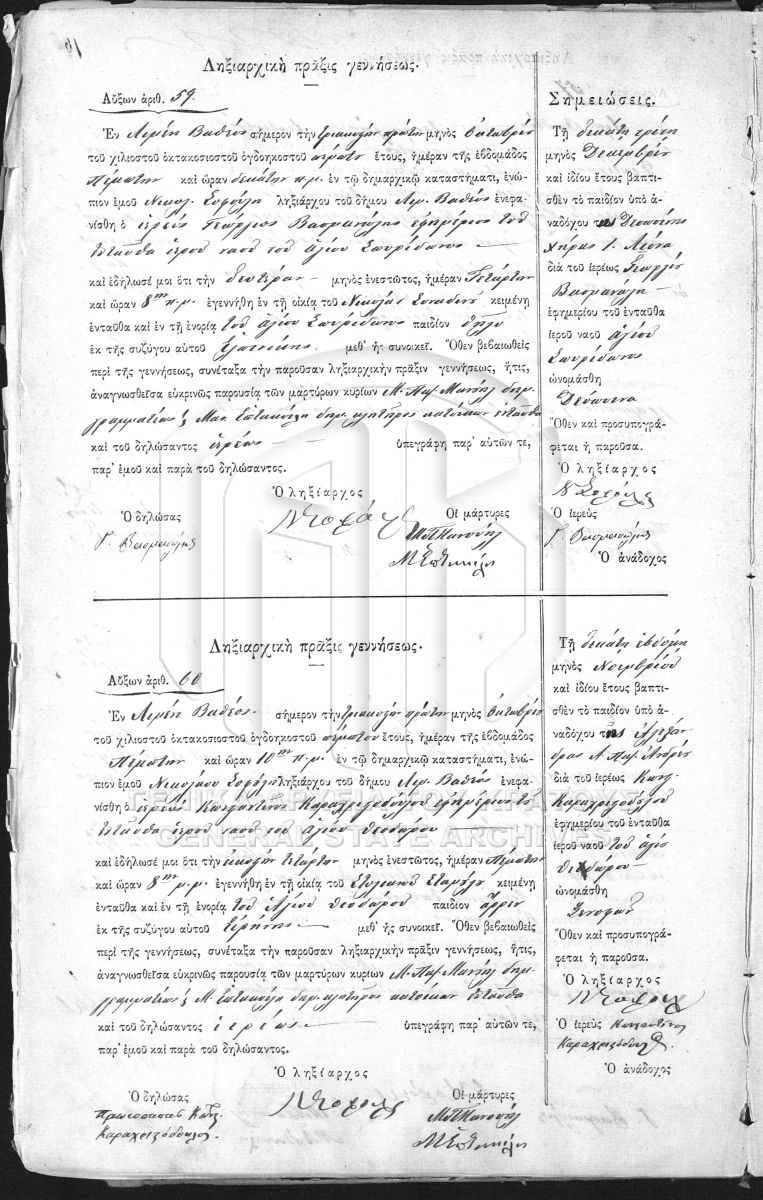 Ληξιαρχικὴ πρᾶξις γεννήσεως.
Αὔξων ἀριθ. 59.
Ἐν Λιμένι Βαθέος σήμερον τὴν τριακοστὴν πρώτην μηνὸς Ὀκτωβρίου
τοῦ χιλιοστοῦ ὀκτακοσιοστοῦ ὀγδοηκοστοῦ πέμπτου ἔτους, ἡμέραν τῆς ἑβδομάδος
Πέμπτην καὶ ὥραν δεκάτην π.μ. ἐν τῷ δημαρχικῷ καταστήματι, ἐνώ-
πιον ἐμοῦ Νικολ. Σοφούλη ληξιάρχου τοῦ δήμου Λιμ. Βαθέος ἐνεφα-
νίσθη ὁ ἱερεὺς Γεώργιος ἐφημέριος τοῦ
ἐνταῦθα ἱεροῦ ναοῦ τοῦ ἁγίου Σπυρίδωνος
καὶ ἐδήλωσέ μοι ὅτι τὴν δευτέραν μηνὸς ἐνεστῶτος, ἡμέραν Τετάρτην
καὶ ὥραν 8ην π.μ. ἐγεννήθη ἐν τῇ οἰκίᾳ τοῦ Νικολάου κειμένῃ
ἐνταῦθα καὶ ἐν τῇ ἐνορίᾳ τοῦ ἁγίου Σπυρίδωνος παιδίον θῆλυ
ἐκ τῆς συζύγου αὐτοῦ μεθ' ἧς συνοικεῖ. Ὅθεν βεβαιωθεὶς
περὶ τῆς γεννήσεως, συνέταξα τὴν παροῦσαν ληξιαρχικὴν πρᾶξιν γεννήσεως, ἥτις,
ἀναγνωσθεῖσα εὐκρινῶς παρουσίᾳ τῶν μαρτύρων κυρίων Μ. Παπ. Μανώλη δημ.
γραμματέως & Μ. δημ. κλητῆρος κατοίκων ἐνταῦθα
καὶ τοῦ δηλώσαντος ἱερέως ὑπεγράφη παρ' αὐτῶν τε,
παρ' ἐμοῦ καὶ παρὰ τοῦ δηλώσαντος.
Ὁ ληξίαρχος
Ὁ δηλώσας
Οἱ μάρτυρες
Σημειώσεις.
Τῇ δεκάτῃ τρίτῃ
μηνὸς Δεκεμβρίου
καὶ ἰδίου ἔτους βαπτι-
σθὲν τὸ παιδίον ὑπὸ ἀ-
ναδόχου τῆς Δεσποίνης
χήρας
διὰ τοῦ ἱερέως Γεωργίου
ἐφημερίου τοῦ ἐνταῦθα
ἱεροῦ ναοῦ ἁγίου
Σπυρίδωνος
ὠνομάσθη
Δέσποινα
Ὅθεν καὶ προσυπογρά-
φεται ἡ παροῦσα.
Ὁ ληξίαρχος
Ν Σοφούλης
Ὁ ἱερεὺς
Ὁ ἀνάδοχος
Ληξιαρχικὴ πρᾶξις γεννήσεως.
Αὔξων ἀριθ. 60
Ἐν Λιμένι Βαθέος σήμερον τὴν τριακοστὴν πρώτην μηνὸς Ὀκτωβρίου
τοῦ χιλιοστοῦ ὀκτακοσιοστοῦ ὀγδοηκοστοῦ πέμπτου ἔτους, ἡμέραν τῆς ἑβδομάδος
Πέμπτην καὶ ὥραν 10ην π.μ. ἐν τῷ δημαρχικῷ καταστήματι, ἐνώ-
πιον ἐμοῦ Νικολάου Σοφούλη ληξιάρχου τοῦ δήμου Λιμ. Βαθέος ἐνεφα-
νίσθη ὁ ἱερεὺς Κωνσταντῖνος ἐφημέριος τοῦ
ἐνταῦθα ἱεροῦ ναοῦ τοῦ ἁγίου Θεοδώρου
ΓΕΝΙΚΑ ΑΡΧΕΙΑ ΤΟΥ ΚΡΑΤΟΥΣ
GENERAL STATE ARCHIVES
καὶ ἐδήλωσέ μοι ὅτι τὴν εἰκοστὴν τετάρτην μηνὸς ἐνεστῶτος, ἡμέραν Πέμπτην
καὶ ὥραν 8ην μ.μ. ἐγεννήθη ἐν τῇ οἰκίᾳ τοῦ Στυλιανοῦ κειμένῃ
ἐνταῦθα καὶ ἐν τῇ ἐνορίᾳ τοῦ Ἁγίου Θεοδώρου παιδίον ἄρρεν
ἐκ τῆς συζύγου αὐτοῦ Εἰρήνης μεθ' ἧς συνοικεῖ. Ὅθεν βεβαιωθεὶς
περὶ τῆς γεννήσεως, συνέταξα τὴν παροῦσαν ληξιαρχικὴν πρᾶξιν γεννήσεως, ἥτις,
ἀναγνωσθεῖσα εὐκρινῶς παρουσίᾳ τῶν μαρτύρων κυρίων Μ. Παπ. Μανώλη δημ.
γραμματέως & Μ. δημ. κλητῆρος κατοίκων ἐνταῦθα
καὶ τοῦ δηλώσαντος ἱερέως ὑπεγράφη παρ' αὐτῶν τε,
παρ' ἐμοῦ καὶ παρὰ τοῦ δηλώσαντος.
Ὁ ληξίαρχος
Ὁ δηλώσας
Οἱ μάρτυρες
Τῇ δεκάτῃ ἑβδόμῃ
μηνὸς Νοεμβρίου
καὶ ἰδίου ἔτους βαπτι-
σθὲν τὸ παιδίον ὑπὸ ἀ-
ναδόχου τῆς Ἀλεξάν-
δρας
διὰ τοῦ ἱερέως Κωνστ.
ἐφημερίου τοῦ ἐνταῦθα
ἱεροῦ ναοῦ τοῦ ἁγίου
Θεοδώρου
ὠνομάσθη
Ξενοφῶν
Ὅθεν καὶ προσυπογρά-
φεται ἡ παροῦσα.
Ὁ ληξίαρχος
Ὁ ἱερεὺς Κωνσταντῖνος
Ὁ ἀνάδοχος